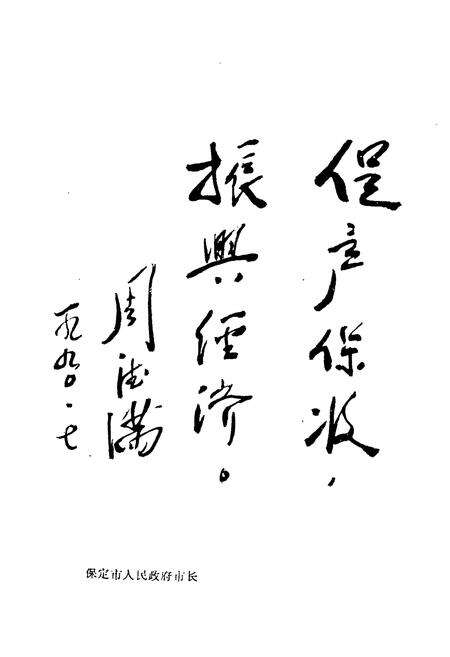 促产保收,
振興经济。
周德满
一九九〇.七
保定市人民政府市长